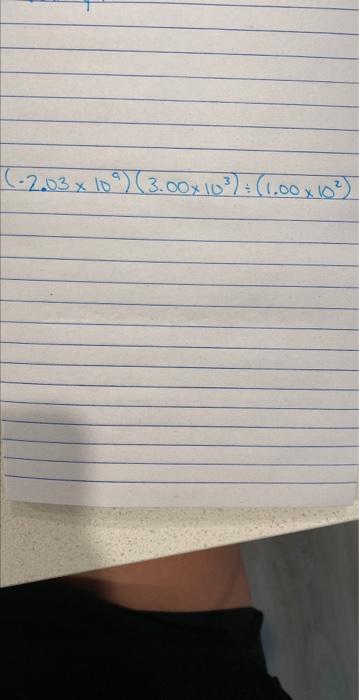 (-2.03 x 10⁹)(3.00x10³)÷(1.00x10²)